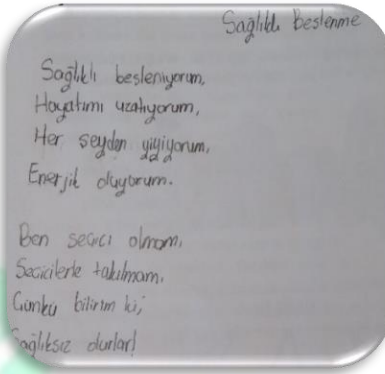 Sağlıklı Beslenme
Sağlıklı besleniyorum,
Hayatımı uzatıyorum,
Her şeyden yiyiyorum,
Enerjik oluyorum.
Ben seçici olmam,
Seçicilerle takılmam,
Çünkü bilirim ki;
Sağlıksız olurlar!